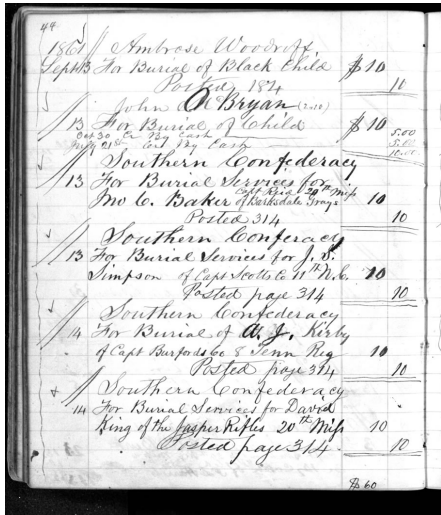 44
1861 Ambrose Woodroff,
Sept 13 For Burial of Black Child $10
Posted 184 10
John A Bryan (210)
13 For Burial of Child $10
Oct 30 Cr By Cash 5.00
21st Cr By Cash 5.00
10.00
Southern Confederacy
13 For Burial Services for
Capt Reid 20th Miss
Jno C. Baker of Barksdale Grays 10
Posted 314 10
Southern Conferacy
13 For Burial Services for J. S.
Simpson of Capt Scotts Co 11th N.C. 10
Posted page 314 10
Southern Confederacy
14 For Burial of A. J. Kirby
of Capt Burfords Co 8 Tenn Reg 10
Posted page 314 10
Southern Confederacy
14 For Burial Services for David
King of the Jasper Rifles 20th Miss 10
Posted page 314 10
$60